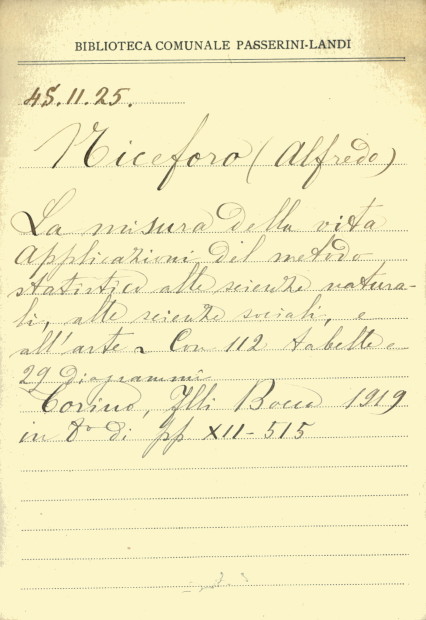 BIBLIOTECA COMUNALE PASSERINI-LANDI
45.11.25.
Niceforo (Alfredo)
La misura della vita
Applicazioni del metodo
statistico alle scienze natura-
li, alle scienze sociali, e
all'arte - Con 112 tabelle e
29 diagrammi
Torino, Flli Bocca 1919
in 8° di pp XII-515